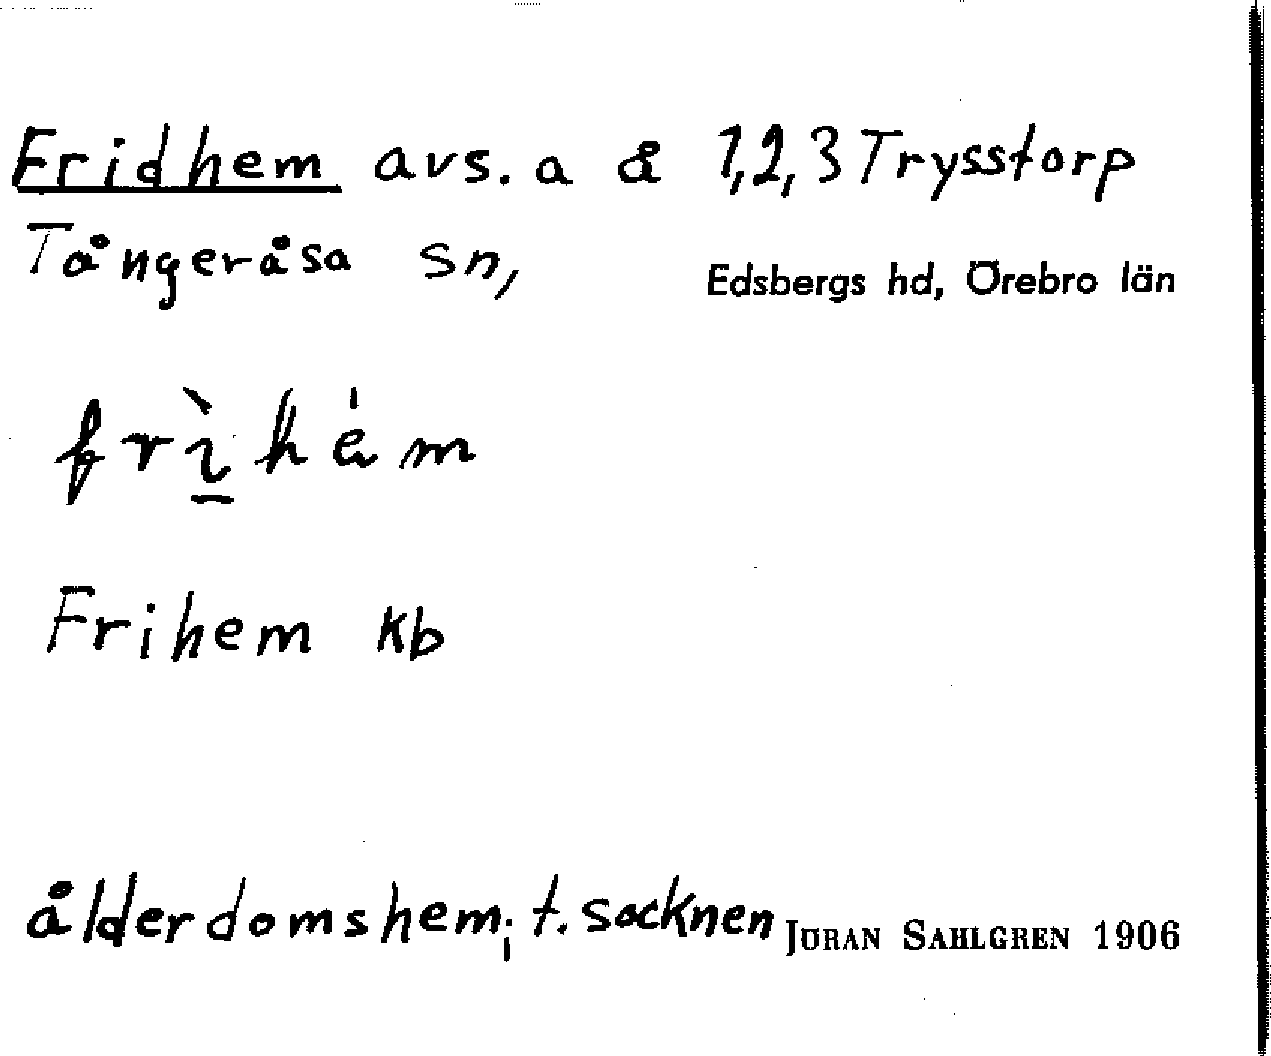 Fridhem avs. a å 1,2,3 Trysstorp
Tångeråsa sn, Edsbergs hd, Örebro län
frìhém
Frihem kb
ålderdomshem; t. socknen JÖRAN SAHLGREN 1906